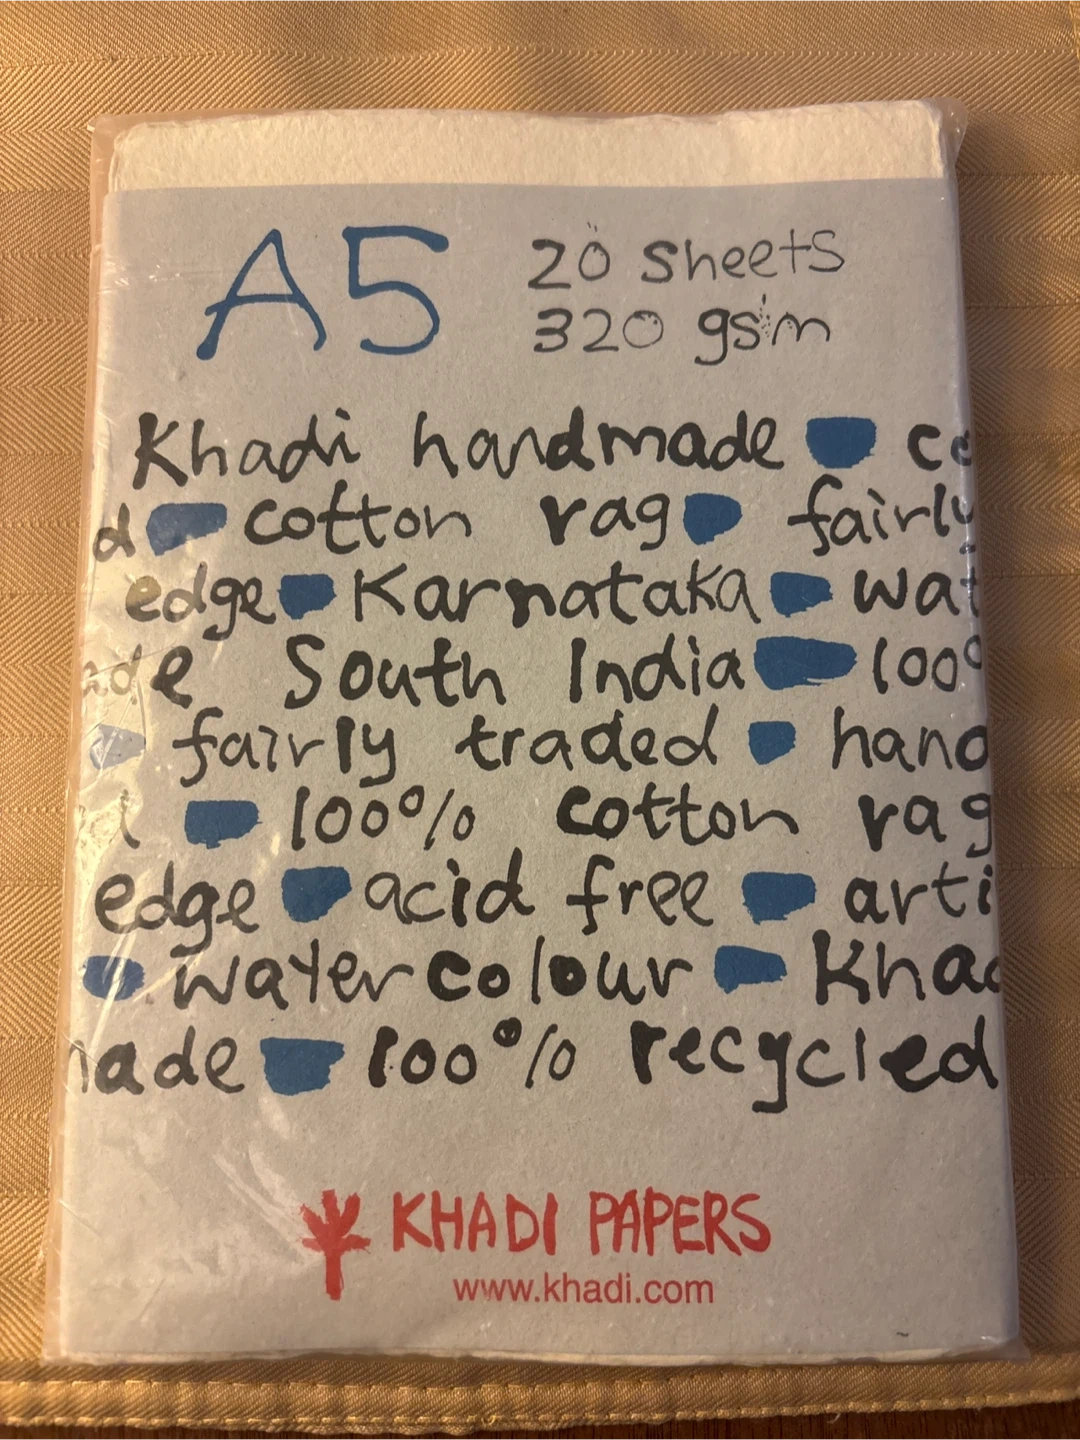 A5 20 sheets
320 gsm
Khadi handmade
cotton rag fairly
edge Karnataka
South India 100
fairly traded
100% cotton rag
edge acid free
watercolour
100% recycled
KHADI PAPERS
www.khadi.com